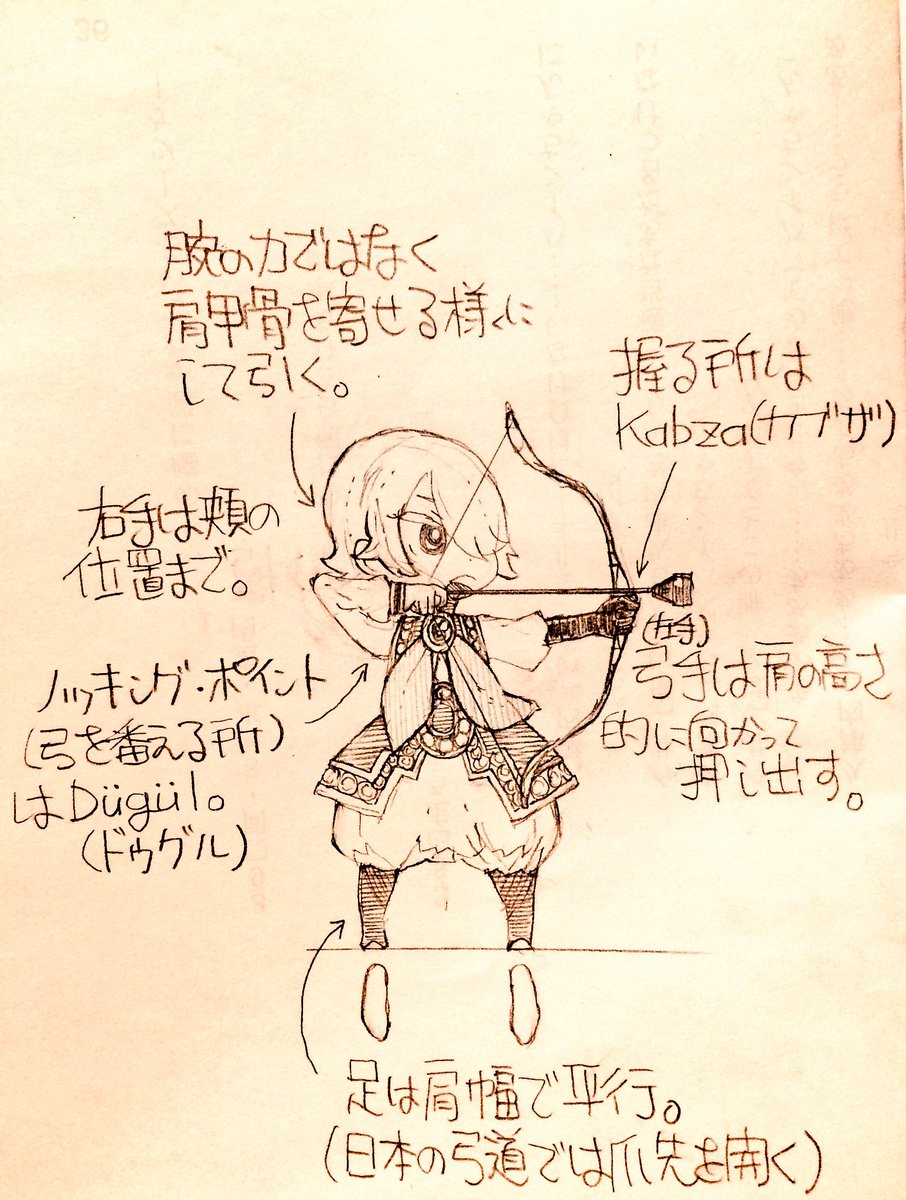 腕の力ではなく
肩甲骨を寄せる様に
して引く。
握る所は
Kabza(カブザ)
右手は頬の
位置まで。
(左手)
弓手は肩の高さ
的に向かって
押し出す。
ノッキング・ポイント
(弓を番える所)
はDügül。
(ドゥグル)
足は肩幅で平行。
(日本の弓道では爪先を開く)